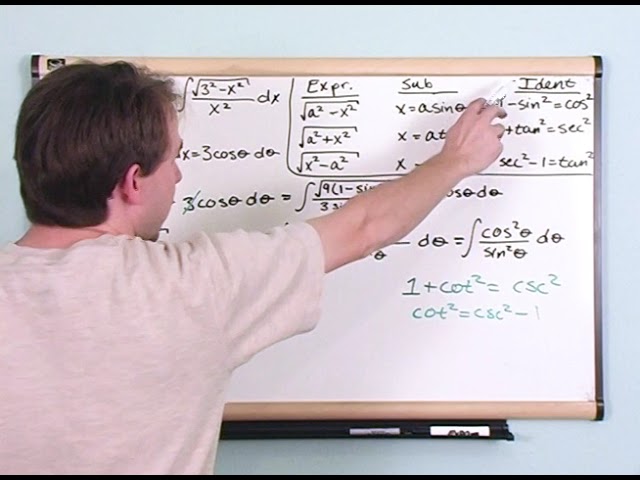 ∫ √(3² - x²) / x² dx
Expr. Sub Ident
√(a² - x²) x = a sinθ - sin² = cos²
√(a² + x²) x = a + tan² = sec²
√(x² - a²) x sec² - 1 = tan²
x = 3cosθ dθ
3cosθ dθ = ∫ √9(1 - sin cosθ dθ
dθ = ∫ cos²θ / sin²θ dθ
1 + cot² = csc²
cot² = csc² - 1